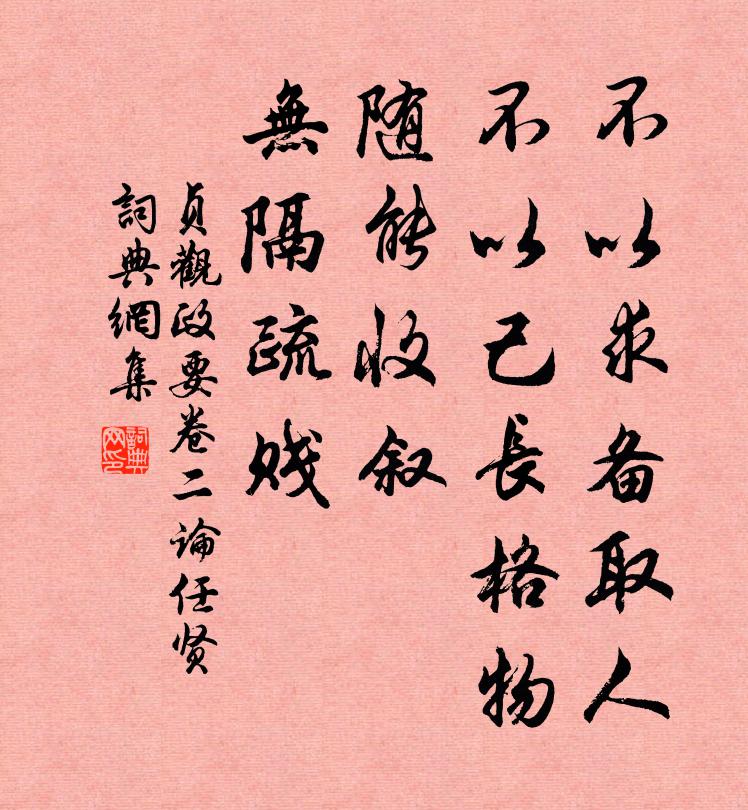 不以求备取人
不以己長格物
随能收叙
無隔疏贱
貞觀政要卷二論任贤
詞典網集
詞典网印